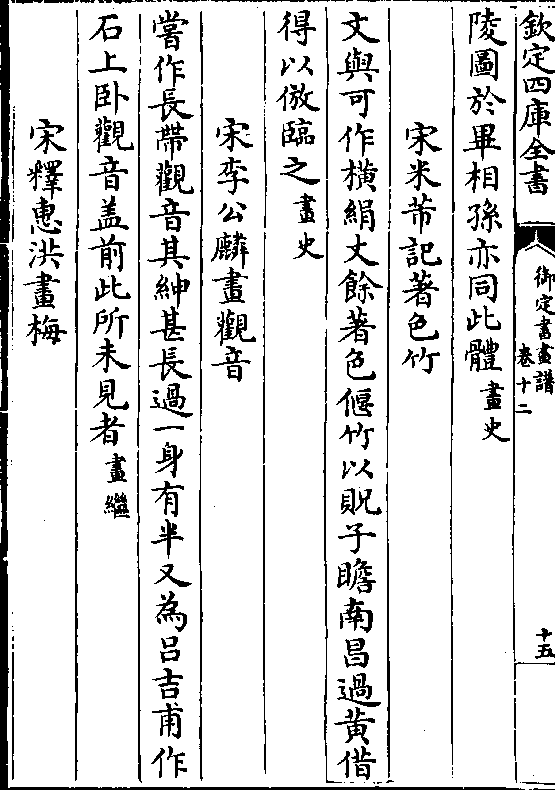 欽定四庫全書
御定書畫譜
卷十二
十五
陵圖於畢相孫亦同此體畫史
宋米芾記著色竹
文與可作橫絹丈餘著色偃竹以貺子瞻南昌過黃借
得以倣臨之畫史
宋李公麟畫觀音
嘗作長帶觀音其紳甚長過一身有半又為呂吉甫作
石上卧觀音盖前此所未見者畫繼
宋釋惠洪畫梅